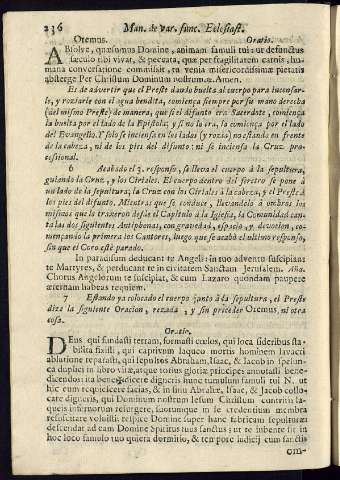 236 Man. de var. func. Eclesiast.
Oremus. Oratio.
ABsolve, quæsumus Domine, animam famuli tui: ut defunctus
sæculo tibi vivat, & peccata, quæ per fragilitatem carnis, hu-
mana conversatione commisit, tu venia misericordissimæ pietatis
absterge Per Christum Dominum nostrum. Amen.
Es de advertir que el Preste dando buelta al cuerpo para incensar-
le, y rociarle con el agua bendita, comiença siempre por su mano derecha
(del mismo Preste) de manera, que si el difunto era Sacerdote, comiença
la buelta por el lado de la Epistola; y si no lo era, la comiença por el lado
del Evangelio. Y solo se inciensa en los lados (y rozia) no estando en frente
de la cabeza, ni de los pies del difunto: ni se inciensa la Cruz pro-
cessional.
6 Acabado el responso, se lleva el cuerpo à la sepultura,
guiando la Cruz, y los Ciriales. El cuerpo dentro del feretro se pone à
un lado de la sepultura; la Cruz con los Ciriales à la cabeza, y el Preste à
los pies del difunto. Mientras que se conduce, llevandolo à ombros los
mismos que la traxeron desde el Capitulo à la Iglesia, la Comunidad can-
ta las dos siguientes Antiphonas, con gravedad, espacio, y devocion, co-
mençando la primera los Cantores, luego que se acabò el ultimo responso,
sin que el Coro estè parado.
In paradisum deducant te Angeli: in tuo adventu suscipiant
te Martyres, & perducant te in civitatem Sanctam Jerusalem. Aña.
Chorus Angelorum te suscipiat, & cum Lazaro quondam paupere
æternam habeas requiem.
7 Estando ya colocado el cuerpo junto à la sepultura, el Preste
dize la siguiente Oracion, rezada, y sin preceder Oremus, ni otra
cosa.
Oratio.
DEus qui fundasti terram, formasti cœlos, qui loca sideribus sta-
bilita fixisti, qui captivum laqueo mortis hominem lavacri
ablutione reparasti, qui sepultos Abraham, Isaac, & Jacob in spelun-
ca duplici in libro vitæ, atque totius gloriæ principes annotasti bene-
dicendos: ita benedicere digneris hunc tumulum famuli tui N. ut
hic eum requiescere facias, & in sinu Abrahæ, Isaac, & Jacob collo-
care digneris, qui Dominum nostrum Jesum Christum contritis la-
queis infernorum resurgere, suorumque in se credentium membra
resuscitare voluisti. respice Domine super hanc fabricam sepulturæ:
descendat ad eam Domine Spiritus tuus sanctus: ut te iubente sit in
hoc loco famulo tuo quieta dormitio, & tempore iudicij cum sanctis
om-